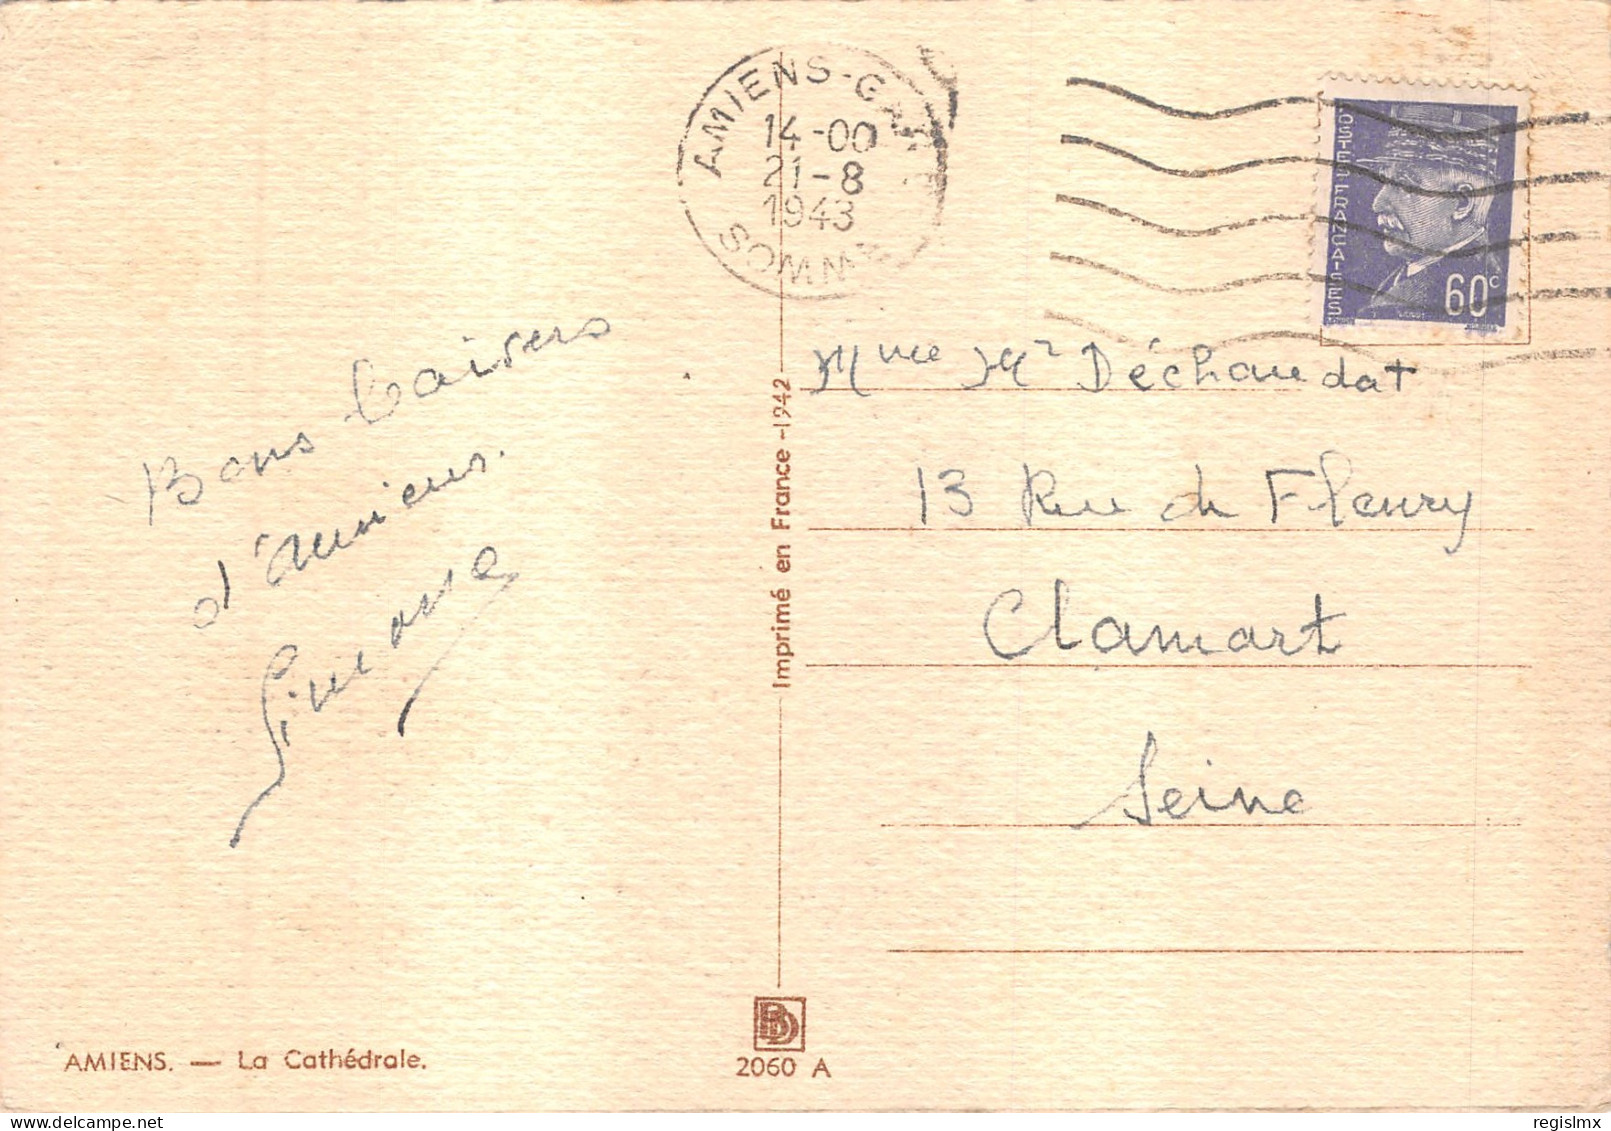 AMIENS-GARE
14-00
21-8
1943
SOMME
POSTES FRANÇAISES
60c
Bons baisers
d'Amiens.
Mme Mr Déchaudat
13 Rue de Fleury
Clamart
Seine
Imprimé en France -1942
BD
2060 A
AMIENS. — La Cathédrale.
www.delcampe.net
regislmx